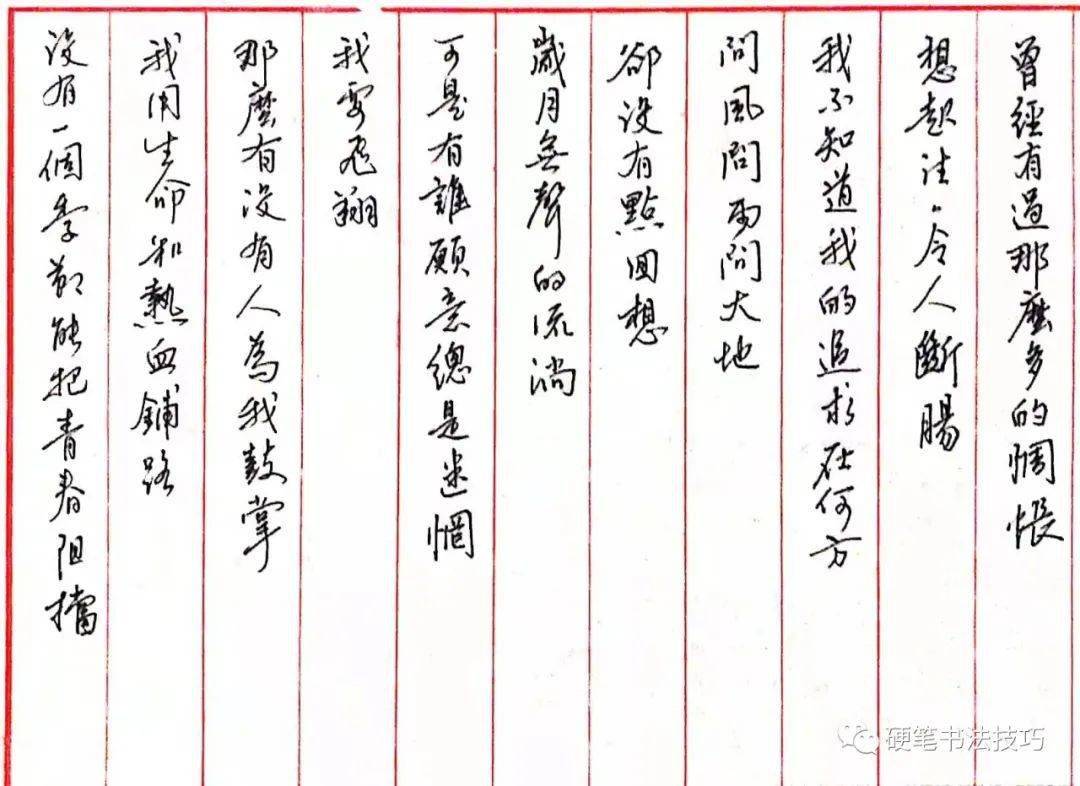 曾經有過那麼多的惆悵
想起往々令人斷腸
我不知道我的追求在何方
問風問雨問大地
卻沒有點回想
歲月無聲的流淌
可是有誰願意總是迷惘
我要飛翔
那麼有沒有人為我鼓掌
我用生命和熱血鋪路
沒有一個季節能把青春阻擋
硬笔书法技巧